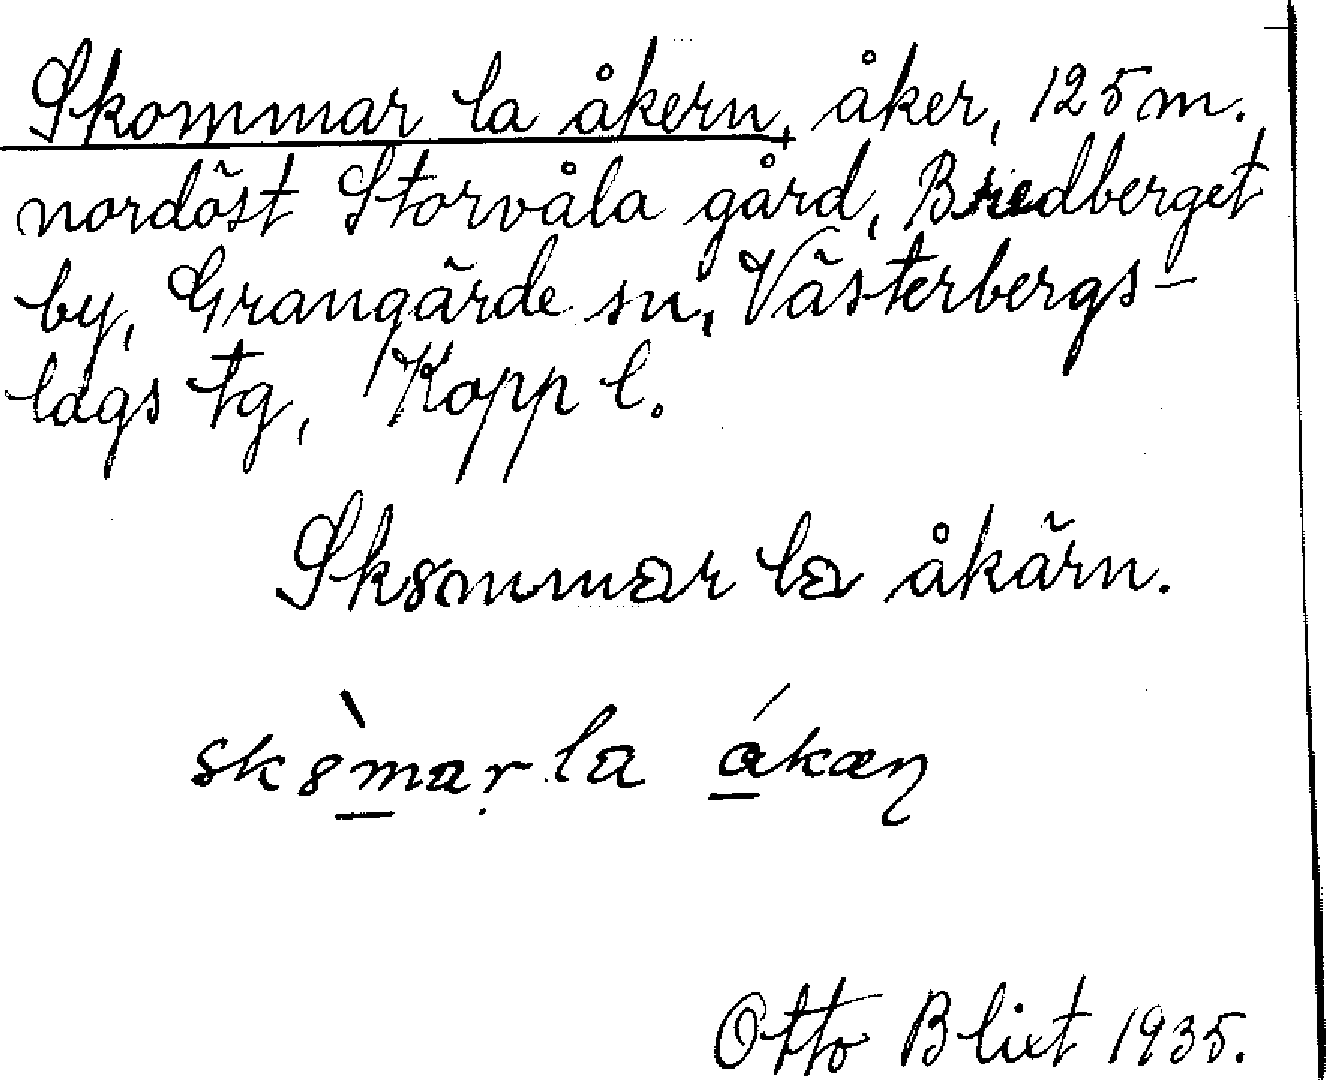 Skommar la åkern, åker, 125 m.
nordöst Storvåla gård, Bredberget
by, Grangärde sn, Västerbergs-
lags tg, Kopp l.
Skommar la åkärn.
Otto Blixt 1935.